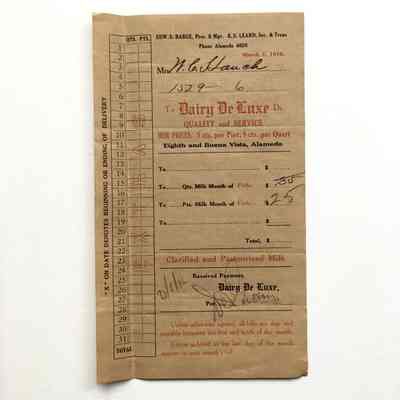 QTS. PTS.
EDW. S. BARGE, Pres. & Mgr. E. D. LEARD, Sec. & Treas
Phone Alameda 4620
March 1, 1916.
M W. C. Hauch
1529 - 6
To Dairy De Luxe Dr.
QUALITY and SERVICE
OUR PRICES: 5 cts. per Pint; 9 cts. per Quart
Eighth and Buena Vista, Alameda
To $
To Qts. Milk Month of Feb. $ .35
To Pts. Milk Month of Feb. $ 25
To
Total, $
Clarified and Pasteurized Milk
Received Payment,
Dairy De Luxe,
Per
Unless otherwise agreed, all bills are due and
payable between the first and tenth of the month.
"X" ON DATE DENOTES BEGINNING OR ENDING OF DELIVERY
1
2
3
4
5
6
7
8
9
10
11
12
13
14
15
16
17
18
19
20
21
22
23
24
25
26
27
28
29
30
31
TOTAL